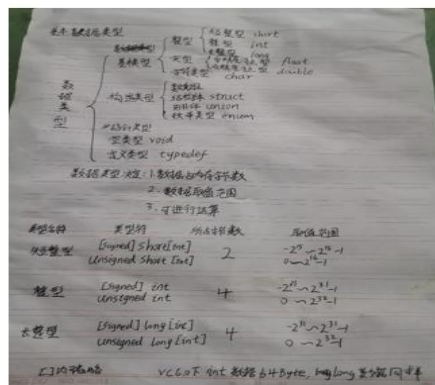 基本数据类型
基本类型
整型
短整型 short
整型 int
长整型 long
实型
float
double
字符类型 char
数据类型
构造类型
数组
结构体 struct
共用体 union
枚举类型 enum
指针类型
空类型 void
定义类型 typedef
数据类型决定: 1.数据占内存字节数
2.数据取值范围
3.可进行运算
类型名称 类型符 所占字节数 取值范围
短整型 [signed] short [int] 2 -2¹⁵~2¹⁵-1
unsigned short [int] 0~2¹⁶-1
整型 [signed] int 4 -2³¹~2³¹-1
unsigned int 0~2³²-1
长整型 [signed] long [int] 4 -2³¹~2³¹-1
unsigned long [int] 0~2³²-1
[]内省略 VC6.0下 int 数据占4Byte, long